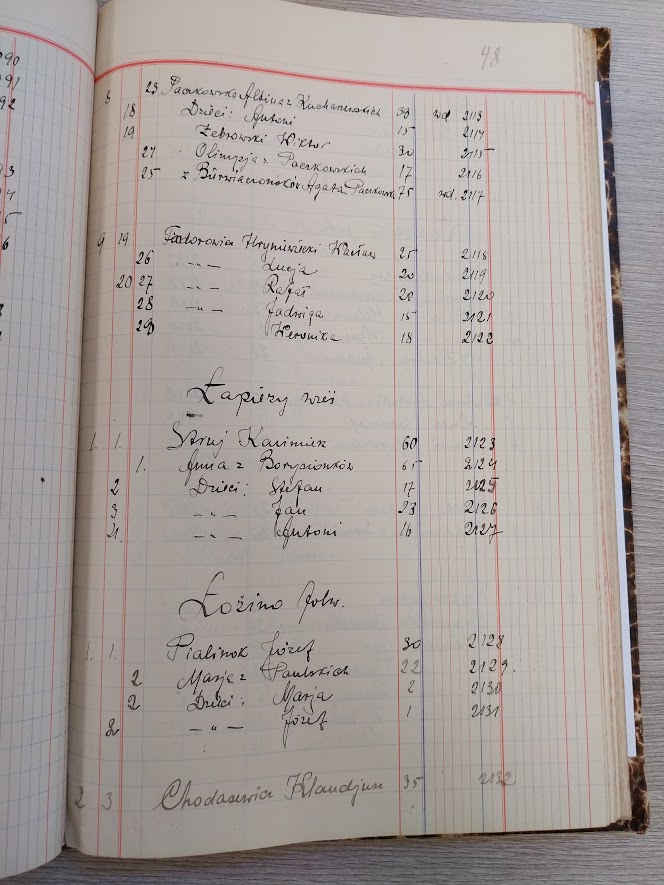 90
91
92
93
5
6
48
8 23 Paczkowska Albina z Kucharzewskich 39 wd. 2113
18 Dzieci: Antoni 15 2114
19 Żebrowski Wiktor 30 2115
24 Olimpja z Paczkowskich 17 2116
25 z Agata 75 wd. 2117
9 19 Fiodorowicz Hryniewicki Wacław 25 2118
26 -„- Łucja 20 2119
20 27 -„- Rafał 20 2120
28 -„- Jadwiga 15 2121
29 Weronika 18 2122
Łapiery wieś
1. 1. Stryj Kazimierz 60 2123
1. Anna z Borysionków 65 2124
2 Dzieci: Stefan 17 2125
3 -„- Jan 23 2126
4. -„- Antoni 16 2127
Łozino folw.
1. 1. Pialinok Józef 30 2128
2 Marja z Pawlskich 22 2129.
2 Dzieci: Marja 2 2130
3 -„- Józef 1 2131
2 3 Chodasewicz Klaudjusz 35 2132